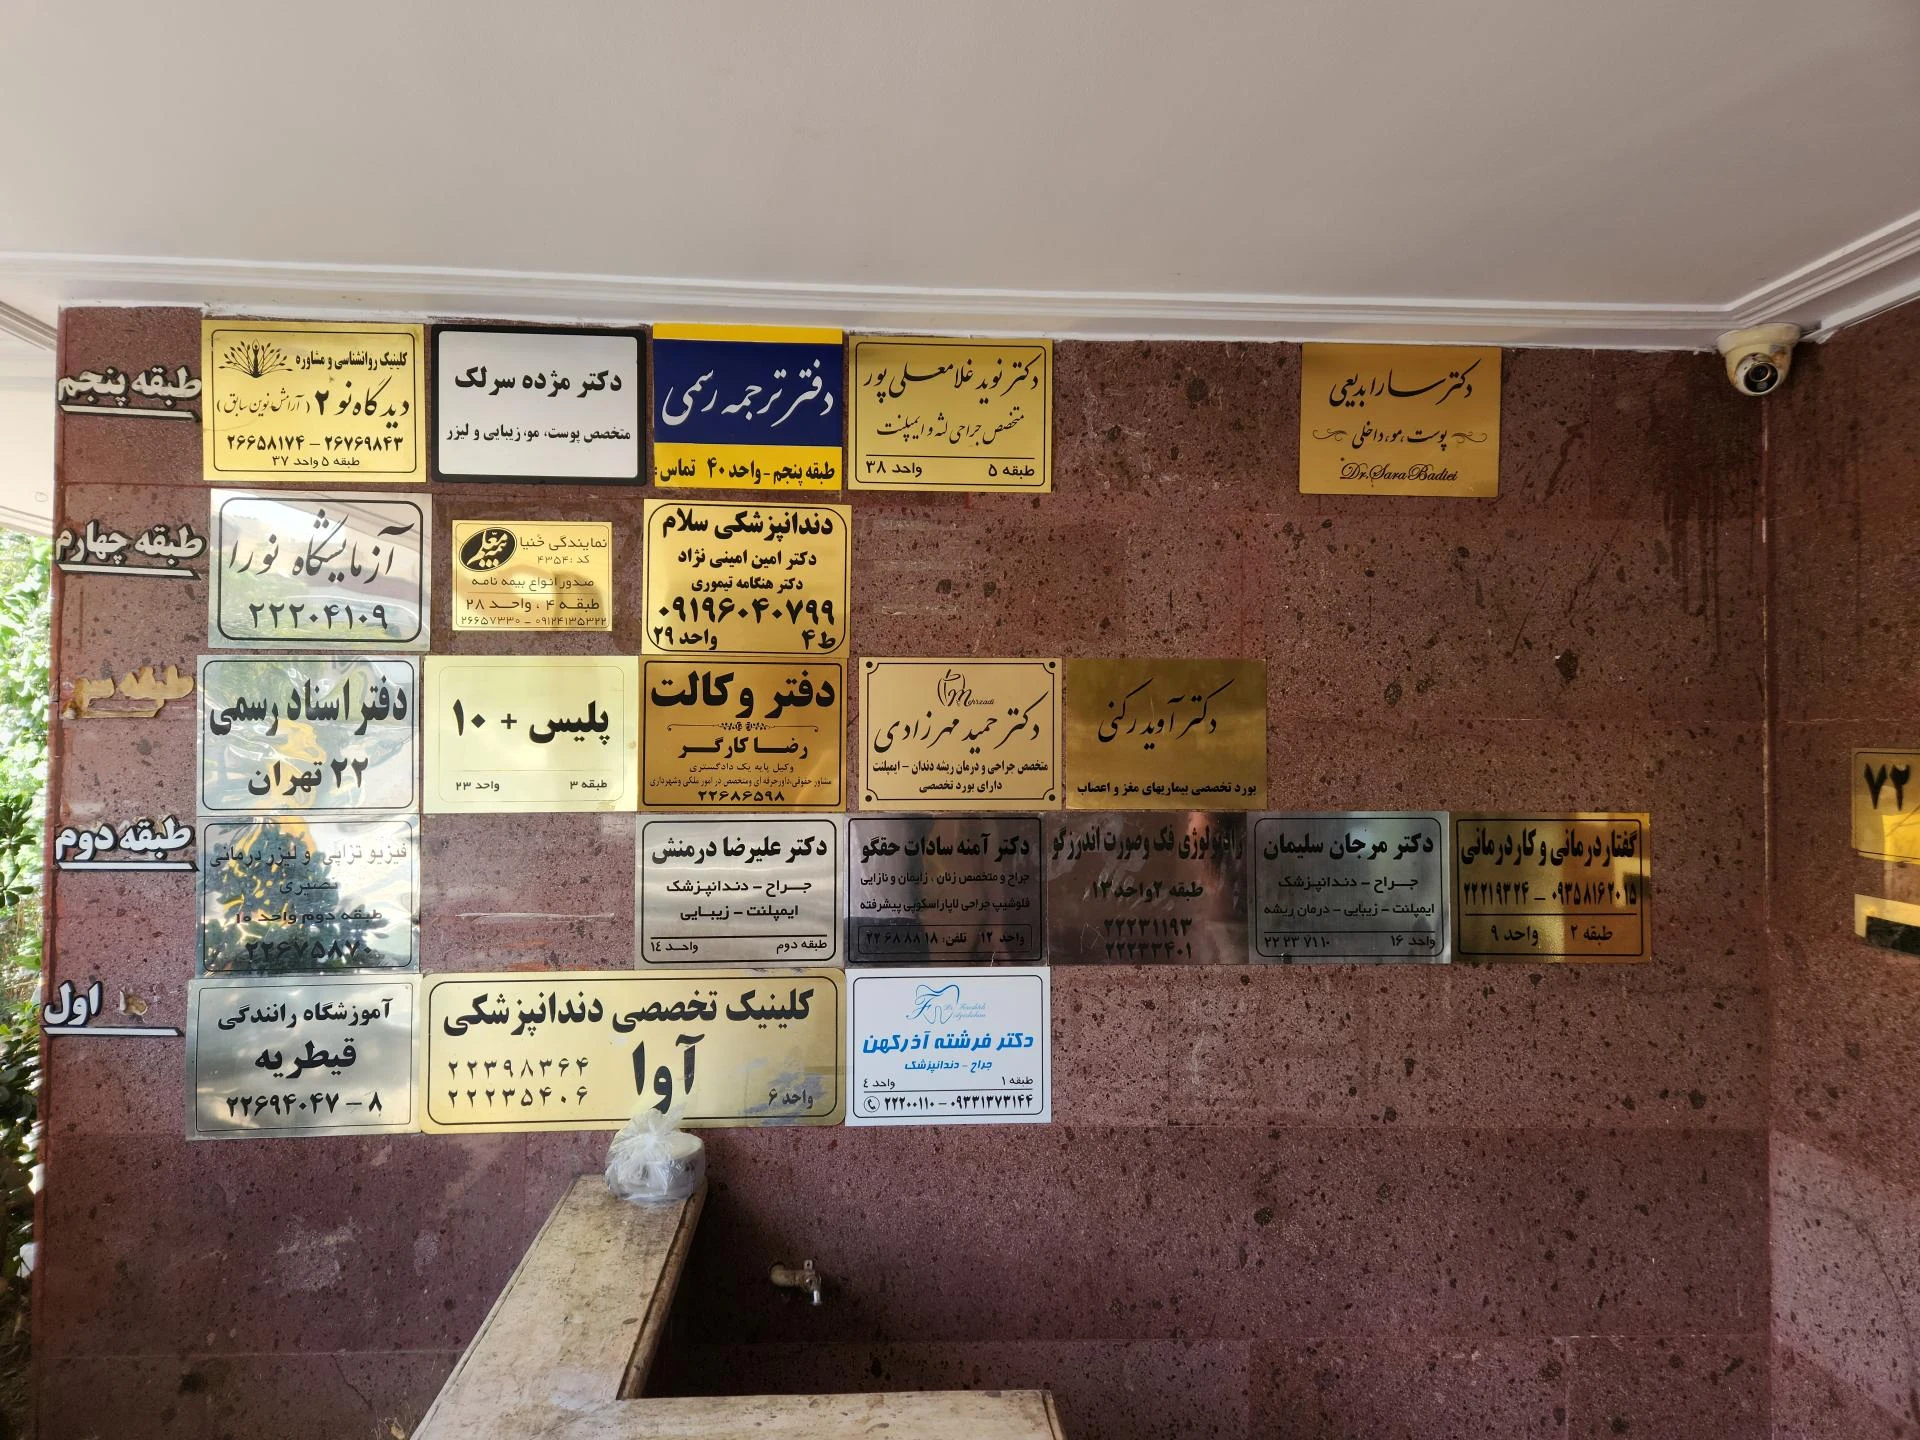 طبقه پنجم
کلینیک روانشناسی و مشاوره
دیدگاه نو ۲ (آرامش نوین سابق)
۲۶۶۵۸۱۷۴ - ۲۶۷۶۹۸۴۳
طبقه ۵ واحد ۳۷
دکتر مژده سرلک
متخصص پوست، مو، زیبایی و لیزر
دفتر ترجمه رسمی
طبقه پنجم - واحد ۴۰ تماس:
دکتر نوید غلامعلی پور
متخصص جراحی لثه و ایمپلنت
طبقه ۵ واحد ۳۸
دکتر سارا بدیعی
پوست، مو، داخلی
Dr. Sara Badiei
طبقه چهارم
آزمایشگاه نورا
۲۲۲۰۴۱۰۹
بیمه معلم
نمایندگی خُنیا
کد: ۴۳۵۴
صدور انواع بیمه نامه
طبقه ۴ ، واحد ۲۸
۲۶۶۵۷۳۳۰ - ۰۹۱۲۴۱۳۵۳۲۲
دندانپزشکی سلام
دکتر امین امینی نژاد
دکتر هنگامه تیموری
۰۹۱۹۶۰۴۰۷۹۹
ط ۴ واحد ۲۹
طبقه سو
دفتر اسناد رسمی
۲۲ تهران
پلیس + ۱۰
طبقه ۳ واحد ۲۳
دفتر وکالت
رضا کارگر
وکیل پایه یک دادگستری
مشاور حقوقی،داور حرفه ای ومتخصص در امور ملکی وشهرداری
۲۲۶۸۶۵۹۸
Mehrzadi
دکتر حمید مهرزادی
متخصص جراحی و درمان ریشه دندان - ایمپلنت
دارای بورد تخصصی
دکتر آوید رکنی
بورد تخصصی بیماریهای مغز و اعصاب
طبقه دوم
فیزیوتراپی و لیزر درمانی
نصیری
طبقه دوم واحد ۱۰
۲۲۶۷۵۸۷۰
دکتر علیرضا درمنش
جراح - دندانپزشک
ایمپلنت - زیبایی
طبقه دوم واحد ۱٤
دکتر آمنه سادات حقگو
جراح و متخصص زنان ، زایمان و نازایی
فلوشیپ جراحی لاپاراسکوپی پیشرفته
واحد ۱۲ تلفن: ۲۲۶۸۸۸۱۸
رادیولوژی فک وصورت اندرزگو
طبقه ۲واحد۱۳
۲۲۲۳۱۱۹۳
۲۲۲۳۳۴۰۱
دکتر مرجان سلیمان
جراح - دندانپزشک
ایمپلنت - زیبایی - درمان ریشه
واحد ۱۶ ۲۲۲۳۷۱۱۰
گفتاردرمانی و کاردرمانی
۲۲۲۱۹۳۲۴ - ۰۹۳۵۸۱۶۲۰۱۵
طبقه ۲ واحد ۹
اول
آموزشگاه رانندگی
قیطریه
۲۲۶۹۴۰۴۷ - ۸
کلینیک تخصصی دندانپزشکی
آوا
۲۲۳۹۸۳۶۴
۲۲۲۳۵۴۰۶
واحد ۶
دکتر فرشته آذرکهن
جراح - دندانپزشک
طبقه ۱ واحد ٤
۲۲۲۰۰۱۱۰ - ۰۹۳۳۱۳۷۳۱۴۴
۷۲